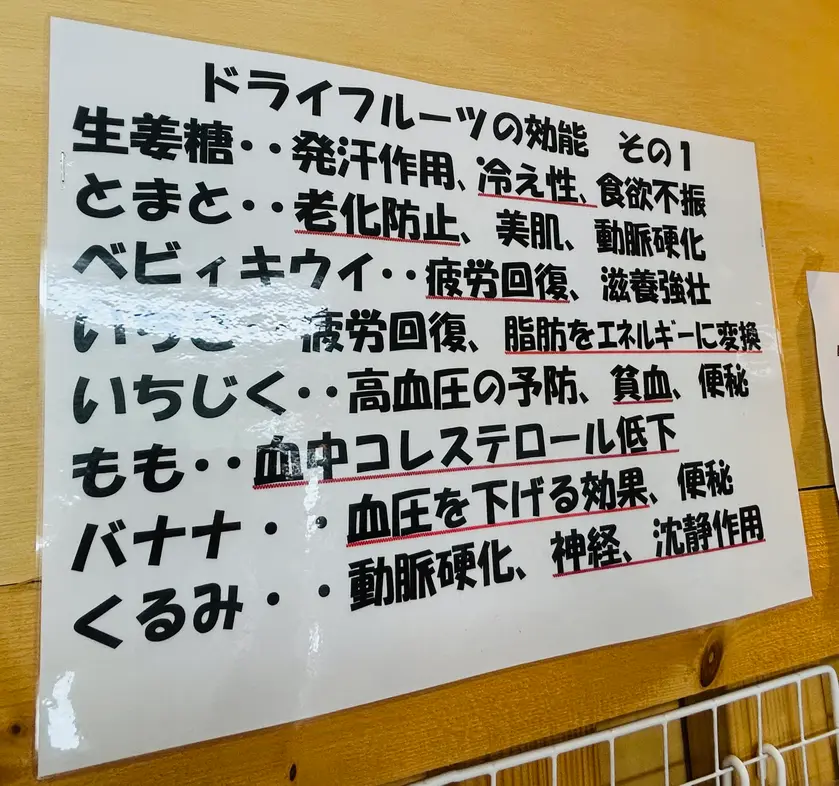 ドライフルーツの効能 その1
生姜糖・・発汗作用、冷え性、食欲不振
とまと・・老化防止、美肌、動脈硬化
ベビィキウイ・・疲労回復、滋養強壮
いちご・・疲労回復、脂肪をエネルギーに変換
いちじく・・高血圧の予防、貧血、便秘
もも・・血中コレステロール低下
バナナ・・血圧を下げる効果、便秘
くるみ・・動脈硬化、神経、沈静作用